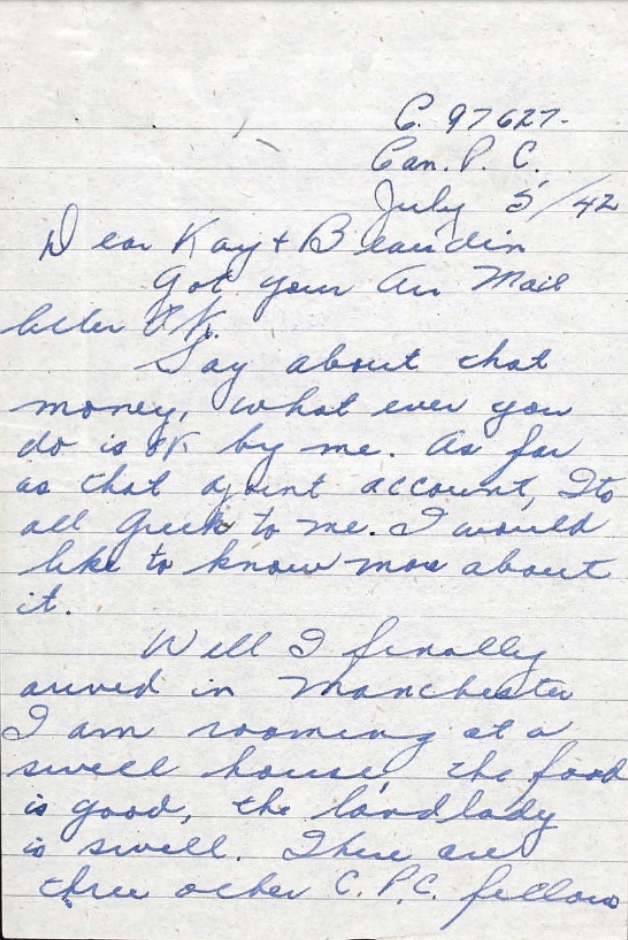 C. 97627-
Can. P. C.
July 5/42
Dear Kay + Beaudin
Got your Air Mail
letter OK.
Say about that
money, what ever you
do is OK by me. As far
as that a joint account, Its
all Greek to me. I would
like to know more about
it.
Well I finally
arived in Manchester
I am rooming at a
swell house, the food
is good, the landlady
is swell. There are
three other C.P.C. fellows